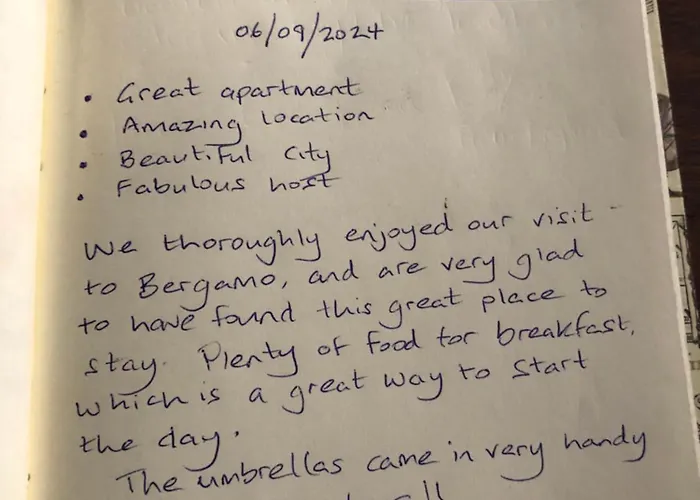 06/09/2024
• Great apartment
• Amazing location
• Beautiful city
• Fabulous host
We thoroughly enjoyed our visit
to Bergamo, and are very glad
to have found this great place to
stay. Plenty of food for breakfast,
which is a great way to start
the day.
The umbrellas came in very handy